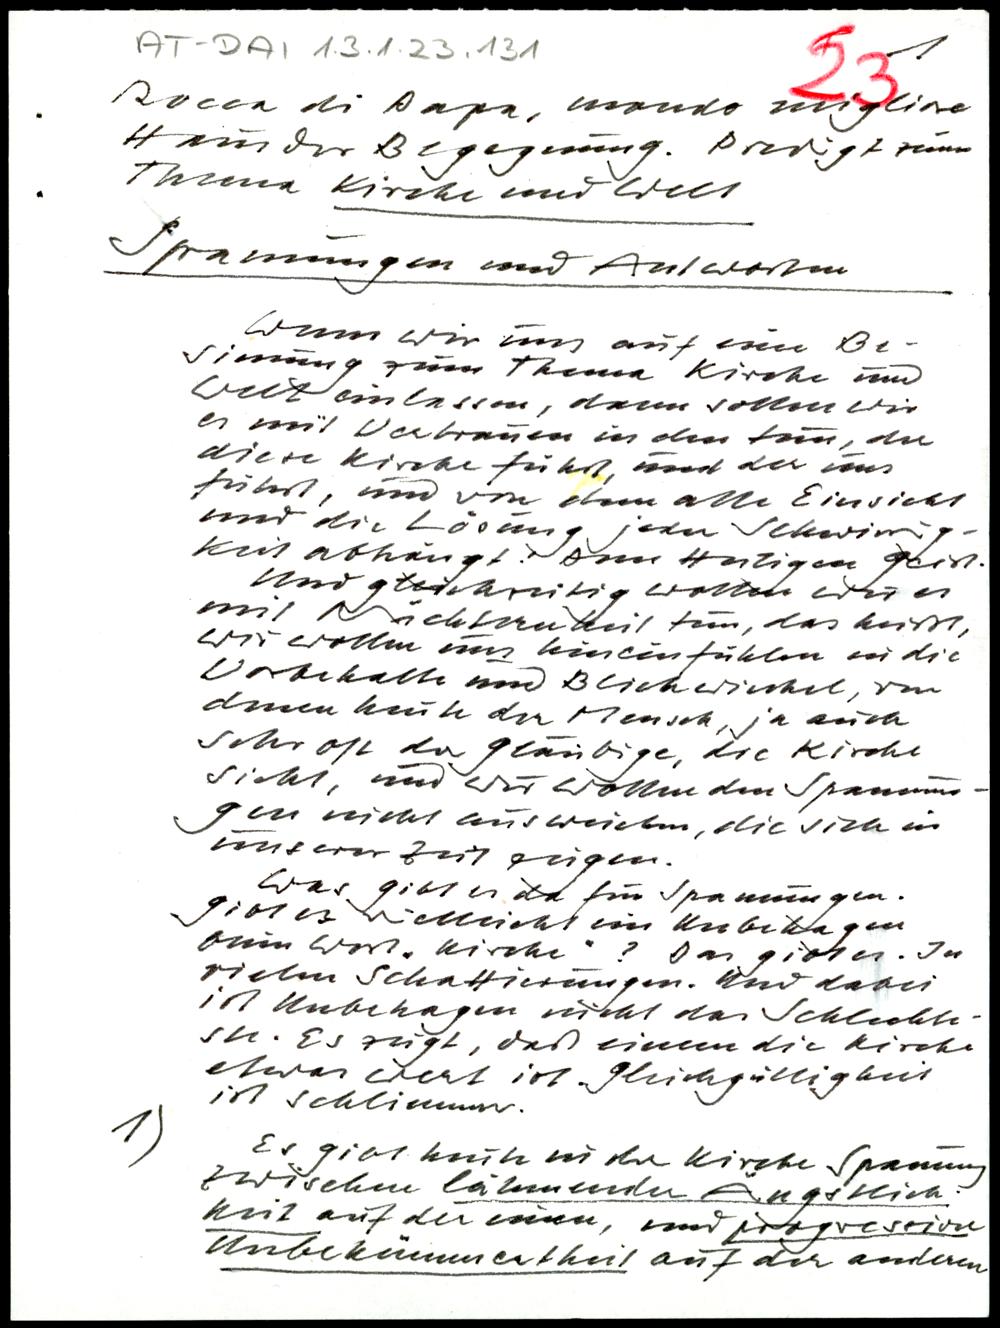 AT-DAI 1.3.1.23.131
53
1
Rocca di Papa, mondo migliore
Haus der Begegnung. Predigt zum
Thema Kirche und Welt
Spannungen und Antworten
Wenn wir uns auf eine Be-
sinnung zum Thema Kirche und
Welt einlassen, dann sollen wir
es mit Vertrauen in den tun, der
diese Kirche führt, und der uns
führt, und von dem alle Einsicht
und die Lösung jeder Schwierig-
keit abhängt: Dem Heiligen Geist.
Und gleichzeitig wollen wir es
mit Nüchternheit tun, das heisst,
wir wollen uns hineinfühlen in die
Vorbehalte und Blickwinkel, von
denen heute der Mensch, ja auch
sehr oft der Gläubige, die Kirche
sieht, und wir wollen den Spannun-
gen nicht ausweichen, die sich in
unserer Zeit zeigen.
Was gibt es da für Spannungen.
Gibt es vielleicht ein Unbehagen
beim Wort „Kirche"? Das gibt es. In
vielen Schattierungen. Und dabei
ist Unbehagen nicht das Schlechte-
ste. Es zeigt, daß einem die Kirche
etwas wert ist. Gleichgültigkeit
ist schlimmer.
1)
Es gibt heute in der Kirche Spannung
zwischen lähmender Ängstlich-
keit auf der einen, und progressive
Unbekümmertheit auf der anderen